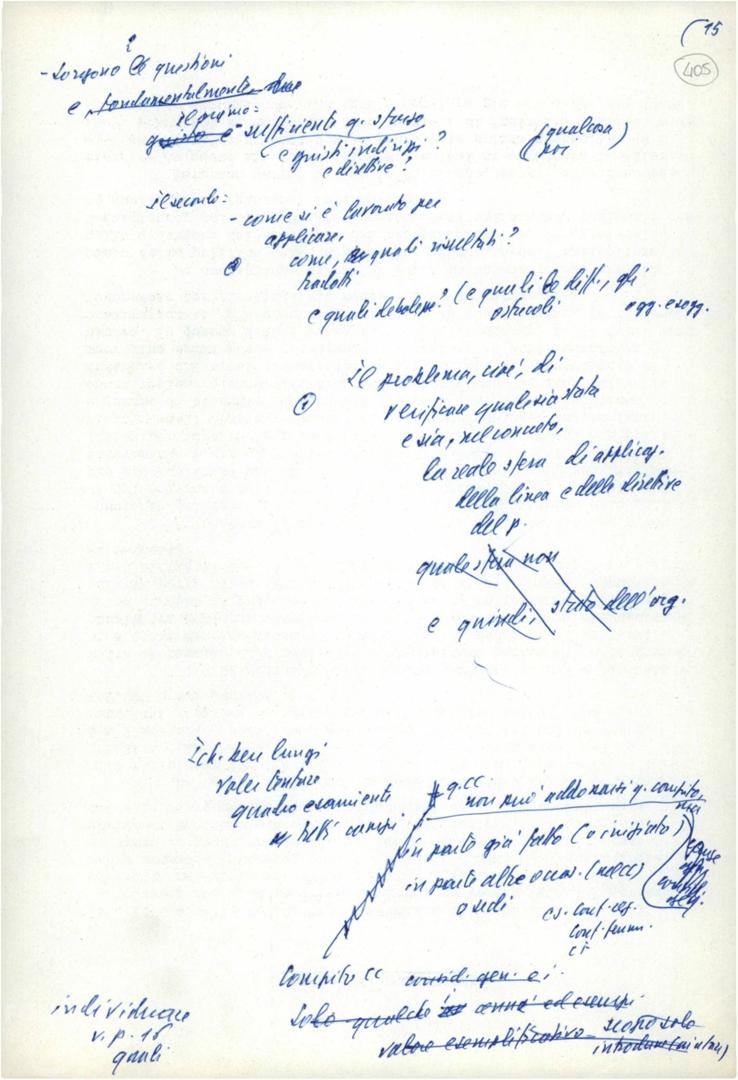 (15
405
2
- Sorgono le questioni
e fondamentalmente due
il primo:
questo è sufficiente q. sforzo
e q.uisti indirizzi?
e direttive?
(qualcosa)
( poi
il secondo:
- come si è lavorato per
applicare,
come, quali risultati?
tradotti
e quali debolezze? (e quali le diff., gli
ostacoli ogg. e sogg.
2
1
Il problema, cioè, di
verificare quale sia stata
e sia, nel concreto,
la reale sfera di applicaz.
della linea e delle direttive
del p.
quale sfera non
e quindi, stato dell'org.
ben lungi
voler tentare
quadro esauriente
tutti campi
q. CC.
non può addossarsi q. compito,
in parte già fatto (o iniziato)
in parte altre occas. (nel CC)
o sedi
es. Conf. reg.
Conf. femm.
Compito CC consid. gen. e i.
Solo qualche cenno ed esempi
valore esemplificativo scopo solo
individuare
v. p. 16
quali